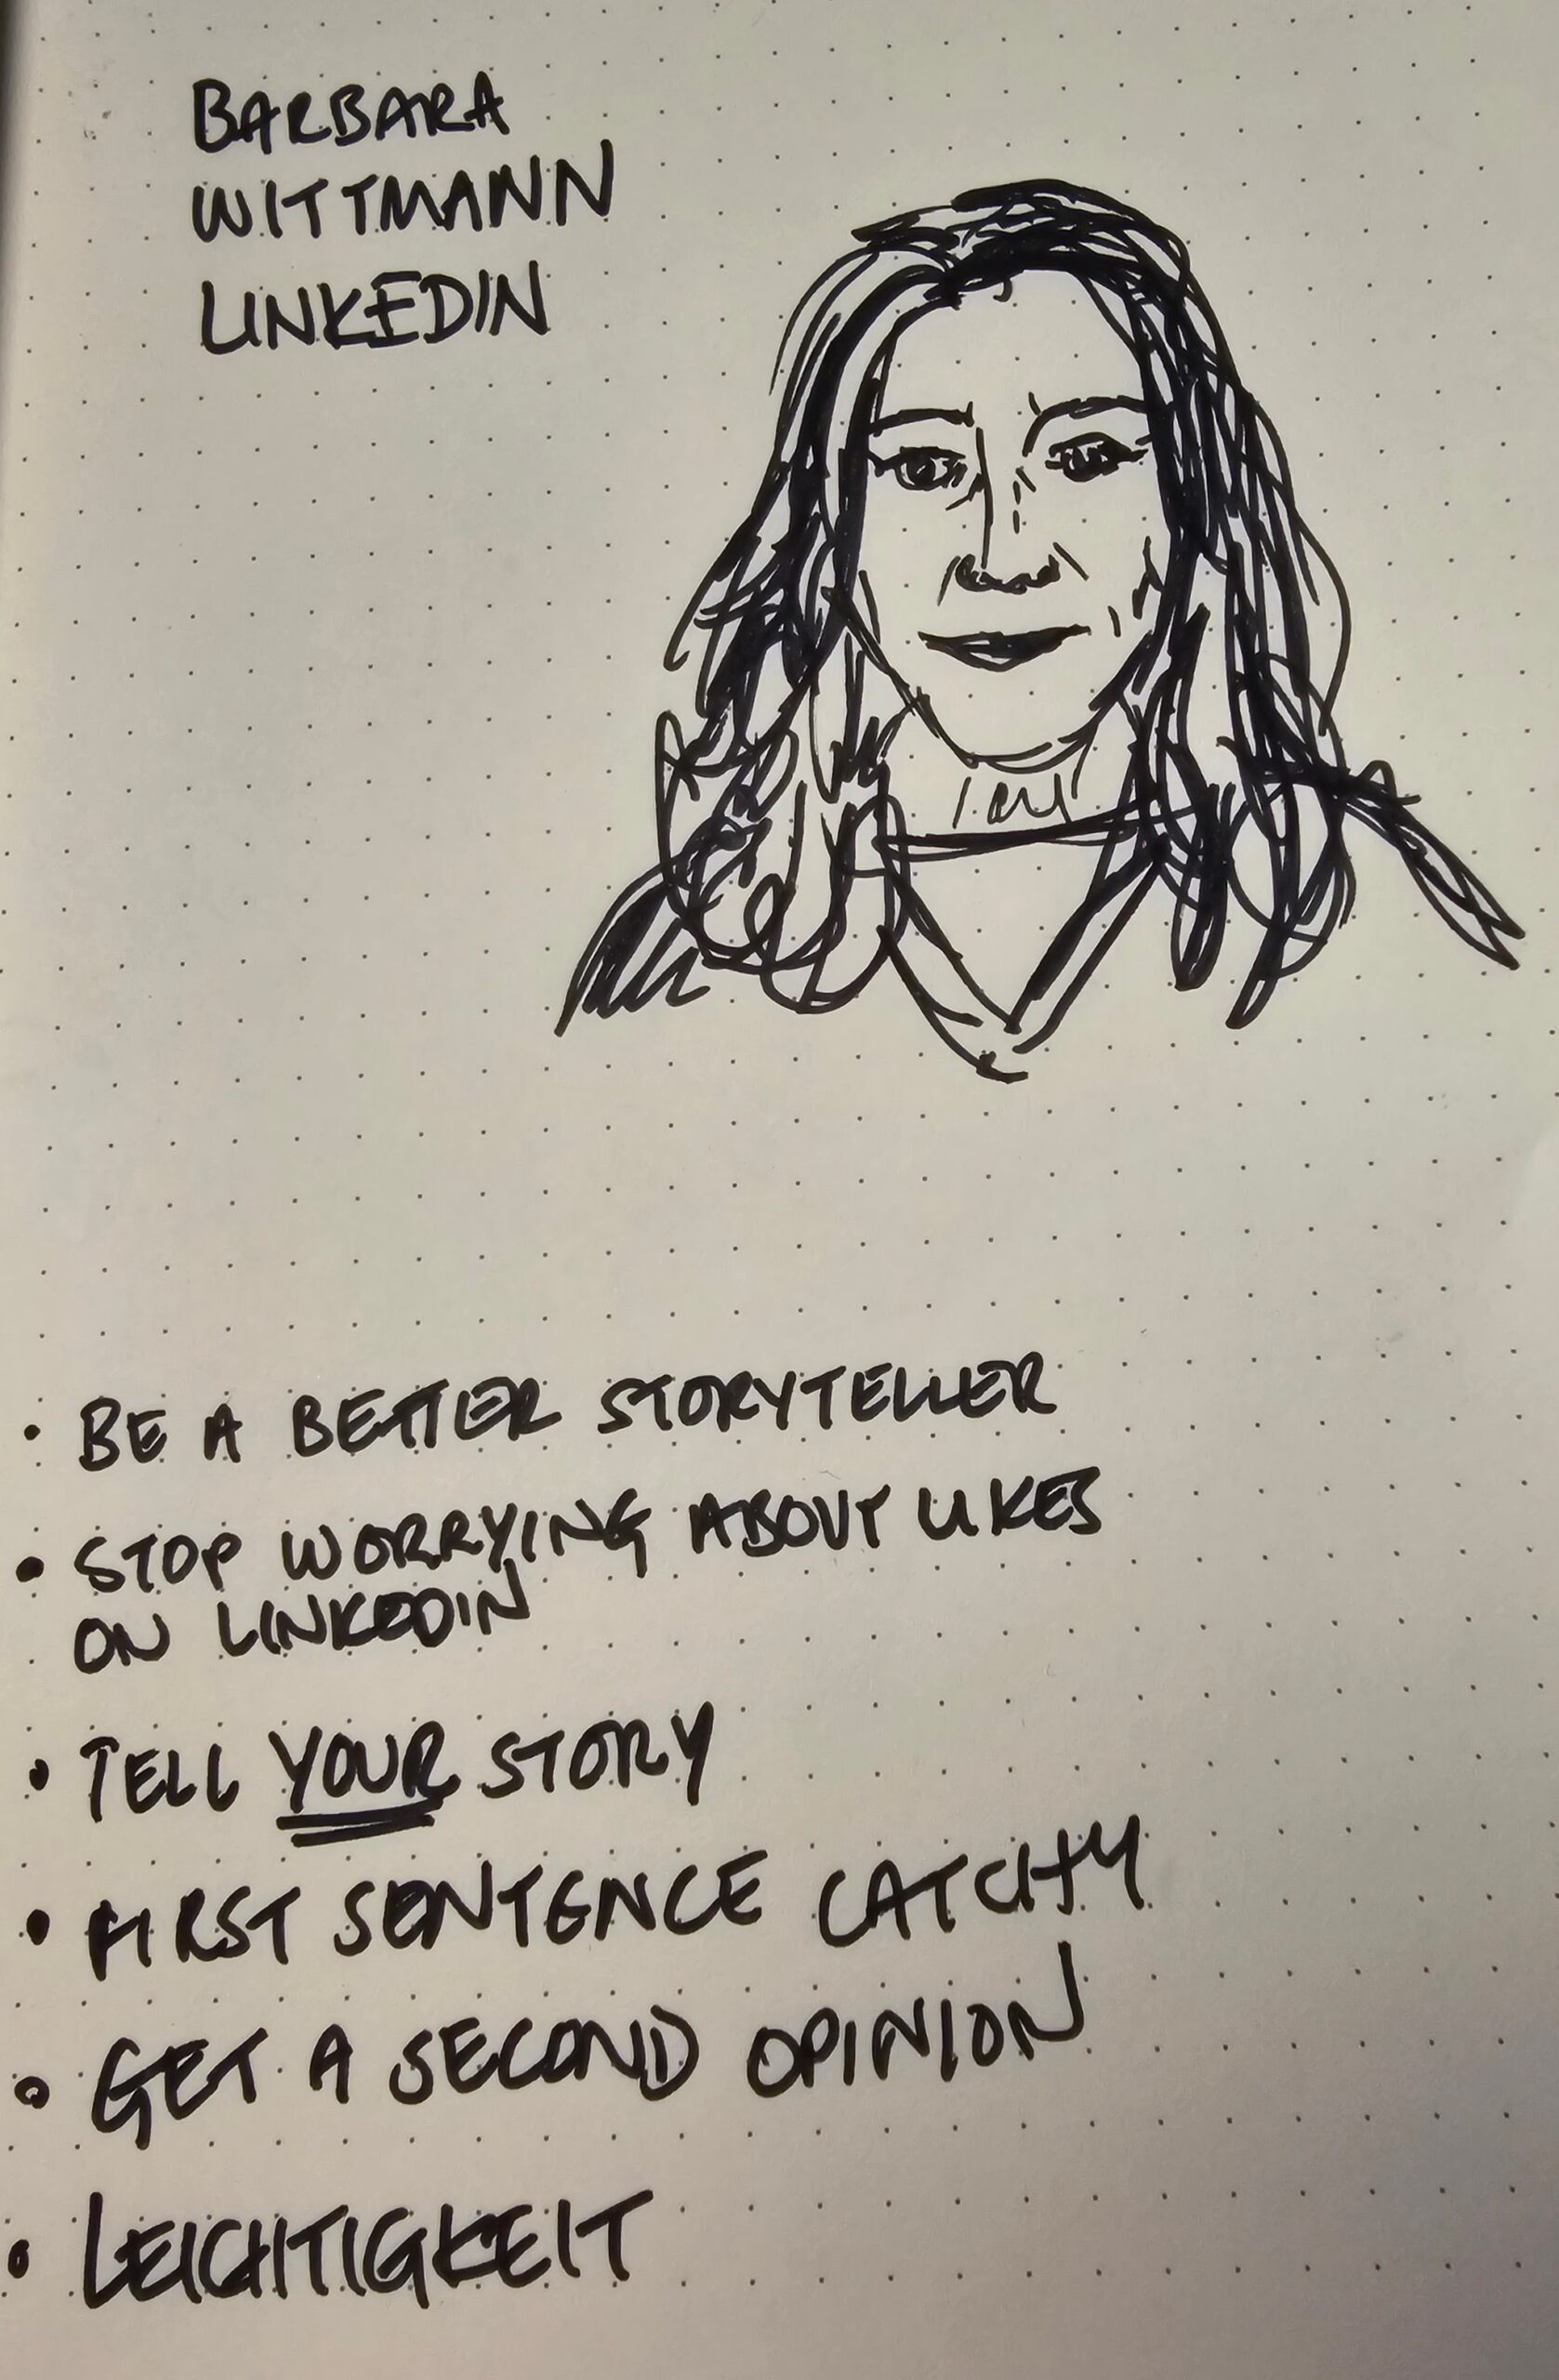 BARBARA
WITTMANN
LINKEDIN
• BE A BETTER STORYTELLER
• STOP WORRYING ABOUT LIKES
ON LINKEDIN
• TELL YOUR STORY
• FIRST SENTENCE CATCHY
• GET A SECOND OPINION
• LEICHTIGKEIT